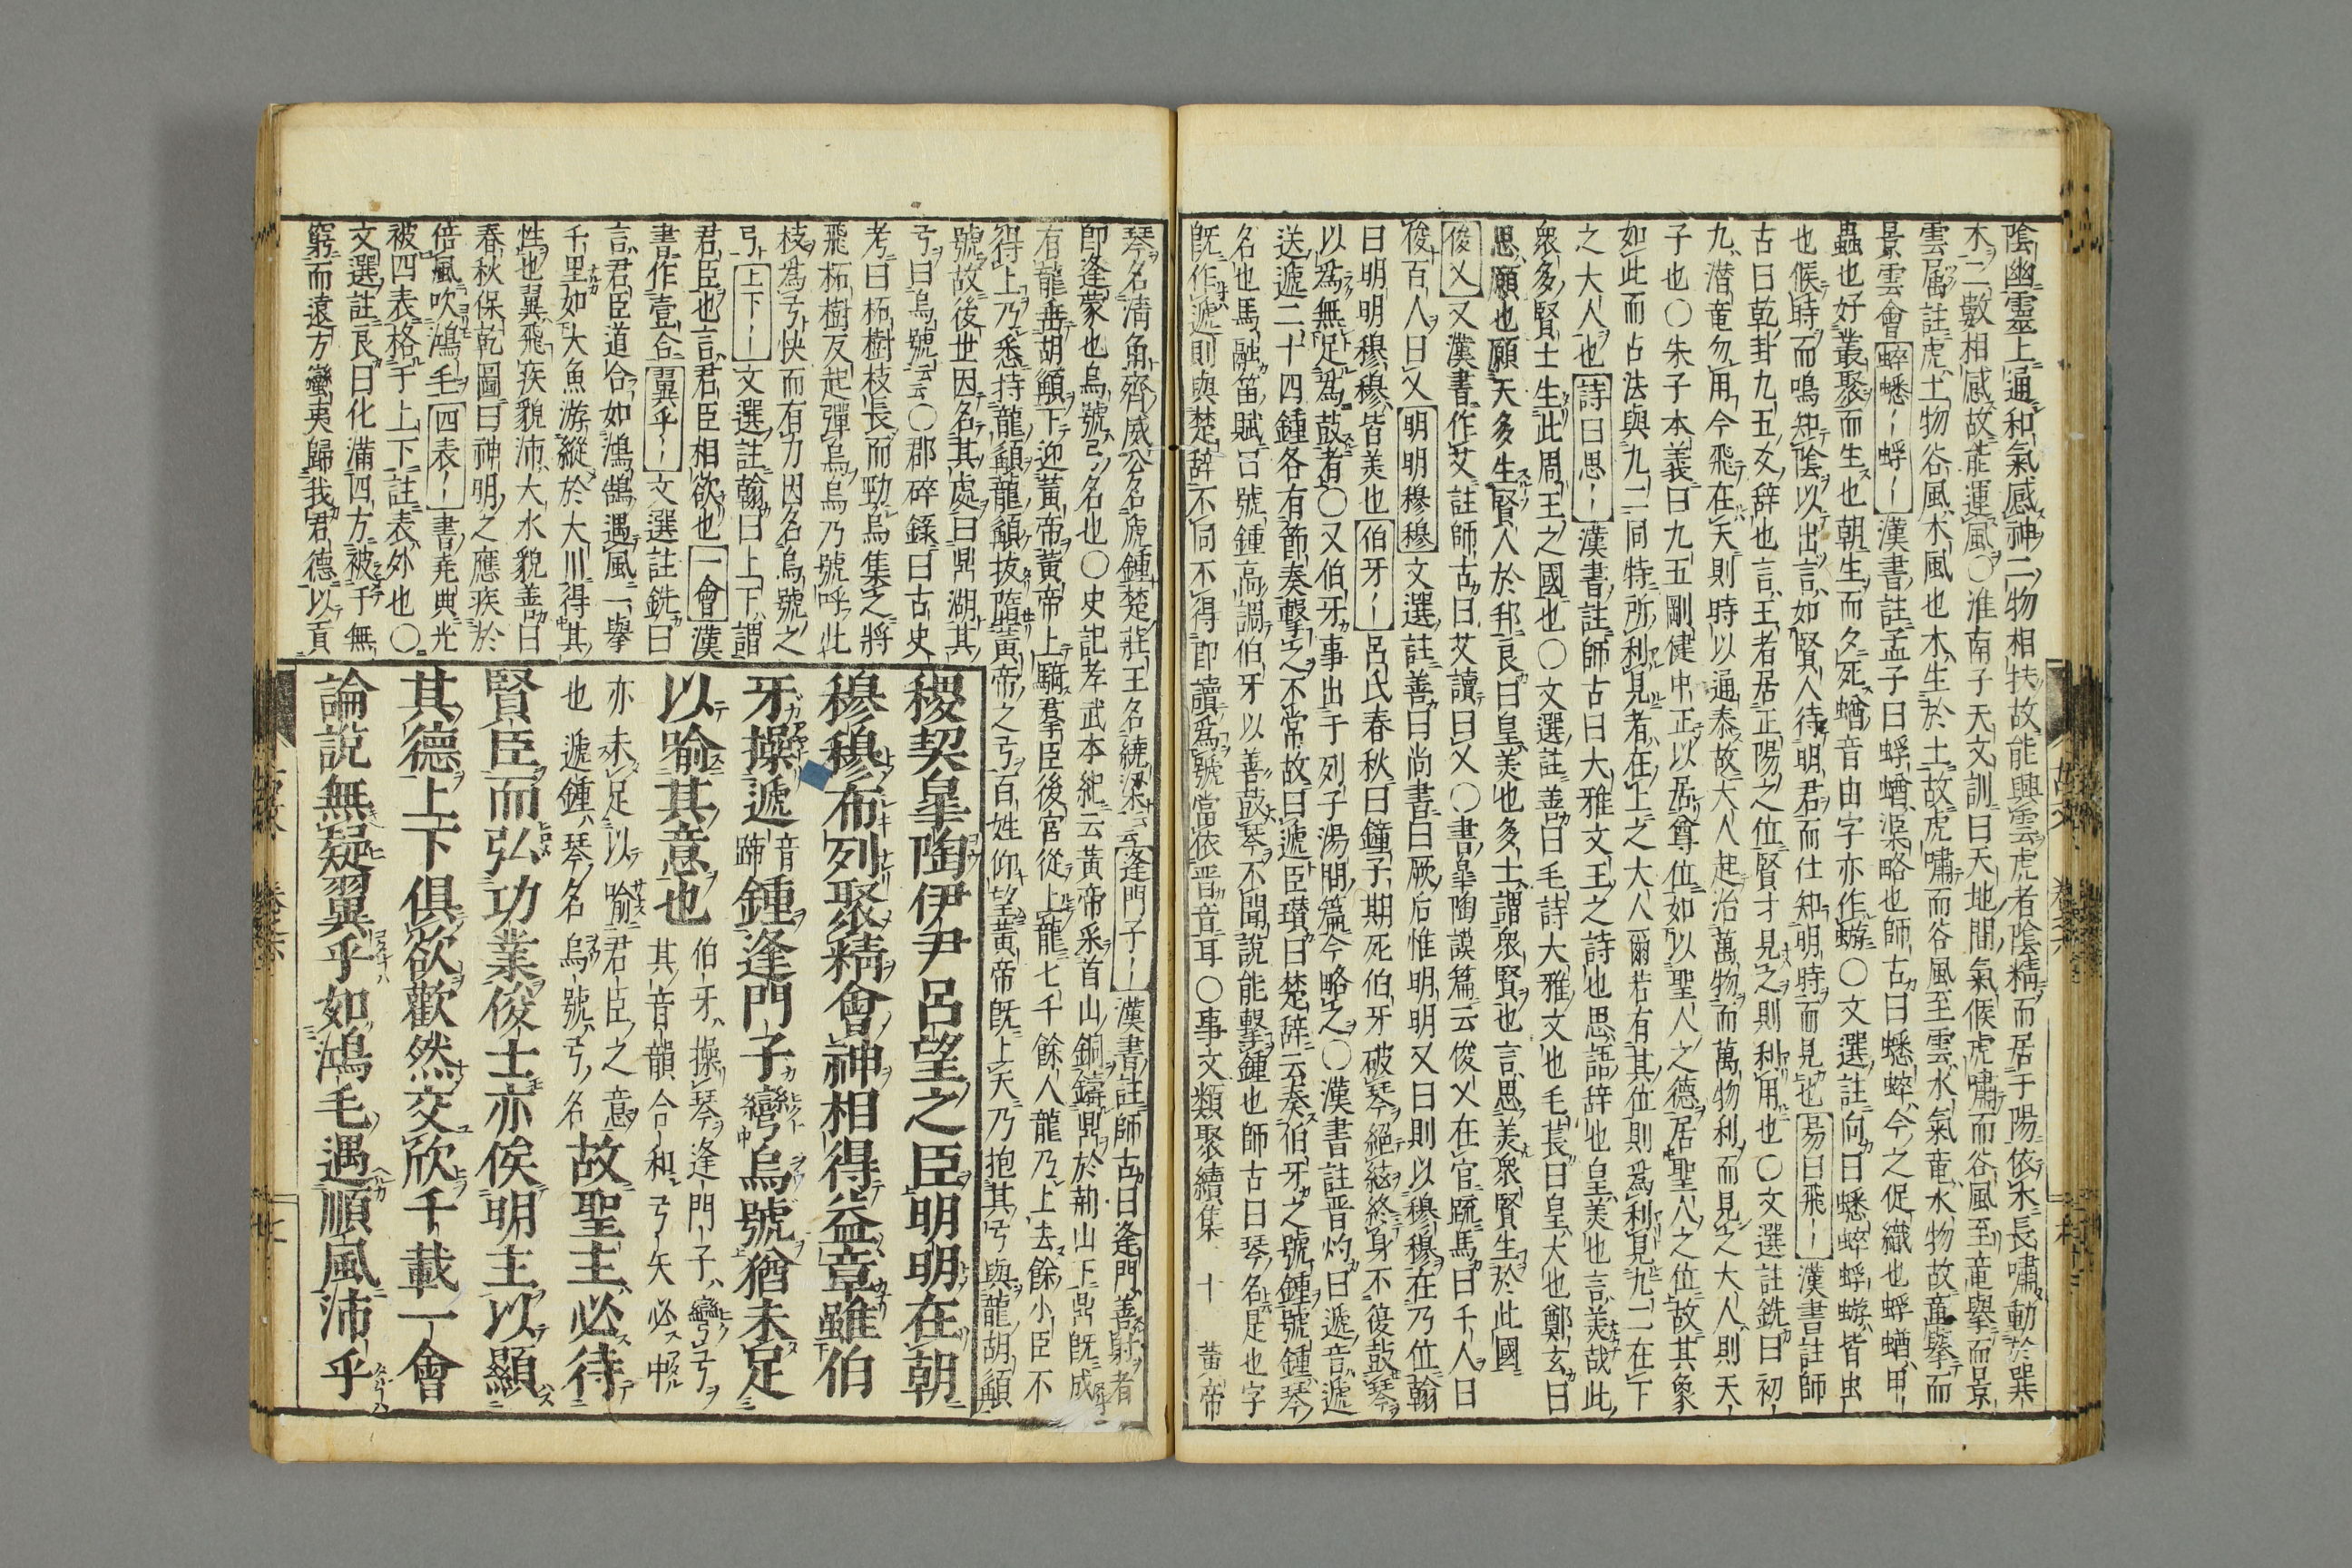 陰幽靈上通和氣感神二物相扶故能興雲虎者陰精而居于陽依木長嘯動於巽
木二數相感故能運風○淮南子天文訓曰天地間氣候虎嘯而谷風至竜擧而景
雲属註虎土物谷風木風也木生於土故虎嘯而谷風至雲水氣竜水物故竜擧而
景雲會蟀蟋〡蜉〡漢書註孟子曰蜉蝤渠略也師古曰蟋蟀今之促織也蜉蝤甲
蟲也好叢聚而生也朝生而夕死蝤音由字亦作蝣○文選註向曰蟋蟀蜉蝣皆虫
也候時而鳴知陰以出言如賢人待明君而仕知明時而見也易曰飛〡漢書註師
古曰乾卦九五爻辞也言王者居正陽之位賢才見之則利用也○文選註銑曰初
九潜竜勿用今飛在天則時以通泰故大人起治萬物而萬物利而見之大人則天
子也○朱子本義曰九五剛健中正以居尊位如以聖人之德居聖人之位故其象
如此而占法與九二同特所利見者在上之大人爾若有其位則爲利見九二在下
之大人也詩曰思〡漢書註師古曰大雅文王之詩也思語辞也皇美也言美哉此
衆多賢士生此周王之國也○文選註善曰毛詩大雅文也毛萇曰皇大也鄭玄曰
思願也願天多生賢人於邦良曰皇美也多士謂衆賢也言思美衆賢生於此國
俊乂又漢書作艾註師古曰艾讀曰乂○書皐陶謨篇云俊乂在官疏馬曰千人曰
俊百人曰乂明明穆穆文選註善曰尚書曰厥后惟明明又曰則以穆穆在乃位翰
曰明明穆穆皆美也伯牙〡呂氏春秋曰鐘子期死伯牙破琴絕絃終身不復鼓琴
以爲無足爲鼓者○又伯牙事出于列子湯問篇今略之○漢書註晋灼曰遞音遞
送遞二十四鍾各有節奏擊之不常故曰遞臣瓚曰楚辞云奏伯牙之號鍾號鍾琴
名也馬融笛賦曰號鍾高調伯牙以善鼓琴不聞說能擊鍾也師古曰琴名是也字
既作遞則與楚辞不同不得即讀爲號當依晋音耳○事文類聚續集 十 黃帝
琴名清角齊威公名虎鍾楚莊王名繞梁云逢門子〡漢書註師古曰逢門善射者
即逢蒙也烏號弓名也○史記孝武本紀云黃帝采首山銅鑄鼎於荊山下鼎既成
有龍垂胡顄下迎黃帝黃帝上騎羣臣後宮從上龍七千餘人龍乃上去餘小臣不
得上乃悉持龍顄龍顄拔墮黃帝之弓百姓仰望黃帝既上天乃抱其弓與龍胡顄
號故後世因名其處曰鼎湖其
弓曰烏號云云○郡碎錄曰古史
考曰柘樹枝長而勁烏集之將
飛柘樹反起彈烏烏乃號呼此
枝爲弓快而有力因名烏號之
弓上下〡文選註翰曰上下謂
君臣也言君臣相欲也一會漢
書作壹合翼乎〡文選註銑曰
言君臣道合如鴻鵠遇風一擧
千里如大魚游縱於大川得其
性也翼飛疾貌沛大水貌善曰
春秋保乾圖曰神明之應疾於
倍風吹鴻毛四表〡書堯典光
被四表格于上下註表外也○
文選註良曰化滿四方被于無
窮而遠方蠻夷歸我君德以貢
稷契皐陶伊尹呂望之臣明明在朝
穆穆布列聚精會神相得益章雖伯
牙操遞音蹄鍾逢門子彎烏號猶未足
以喻其意也伯牙操琴逢門子彎弓其音韻合和弓矢必中
亦未足以喻君臣之意也遞鍾琴名烏號弓名故聖主必待
賢臣而弘功業俊士亦俟明主以顯
其德上下俱欲歡然交欣千載一會
論說無疑翼乎如鴻毛遇順風沛乎